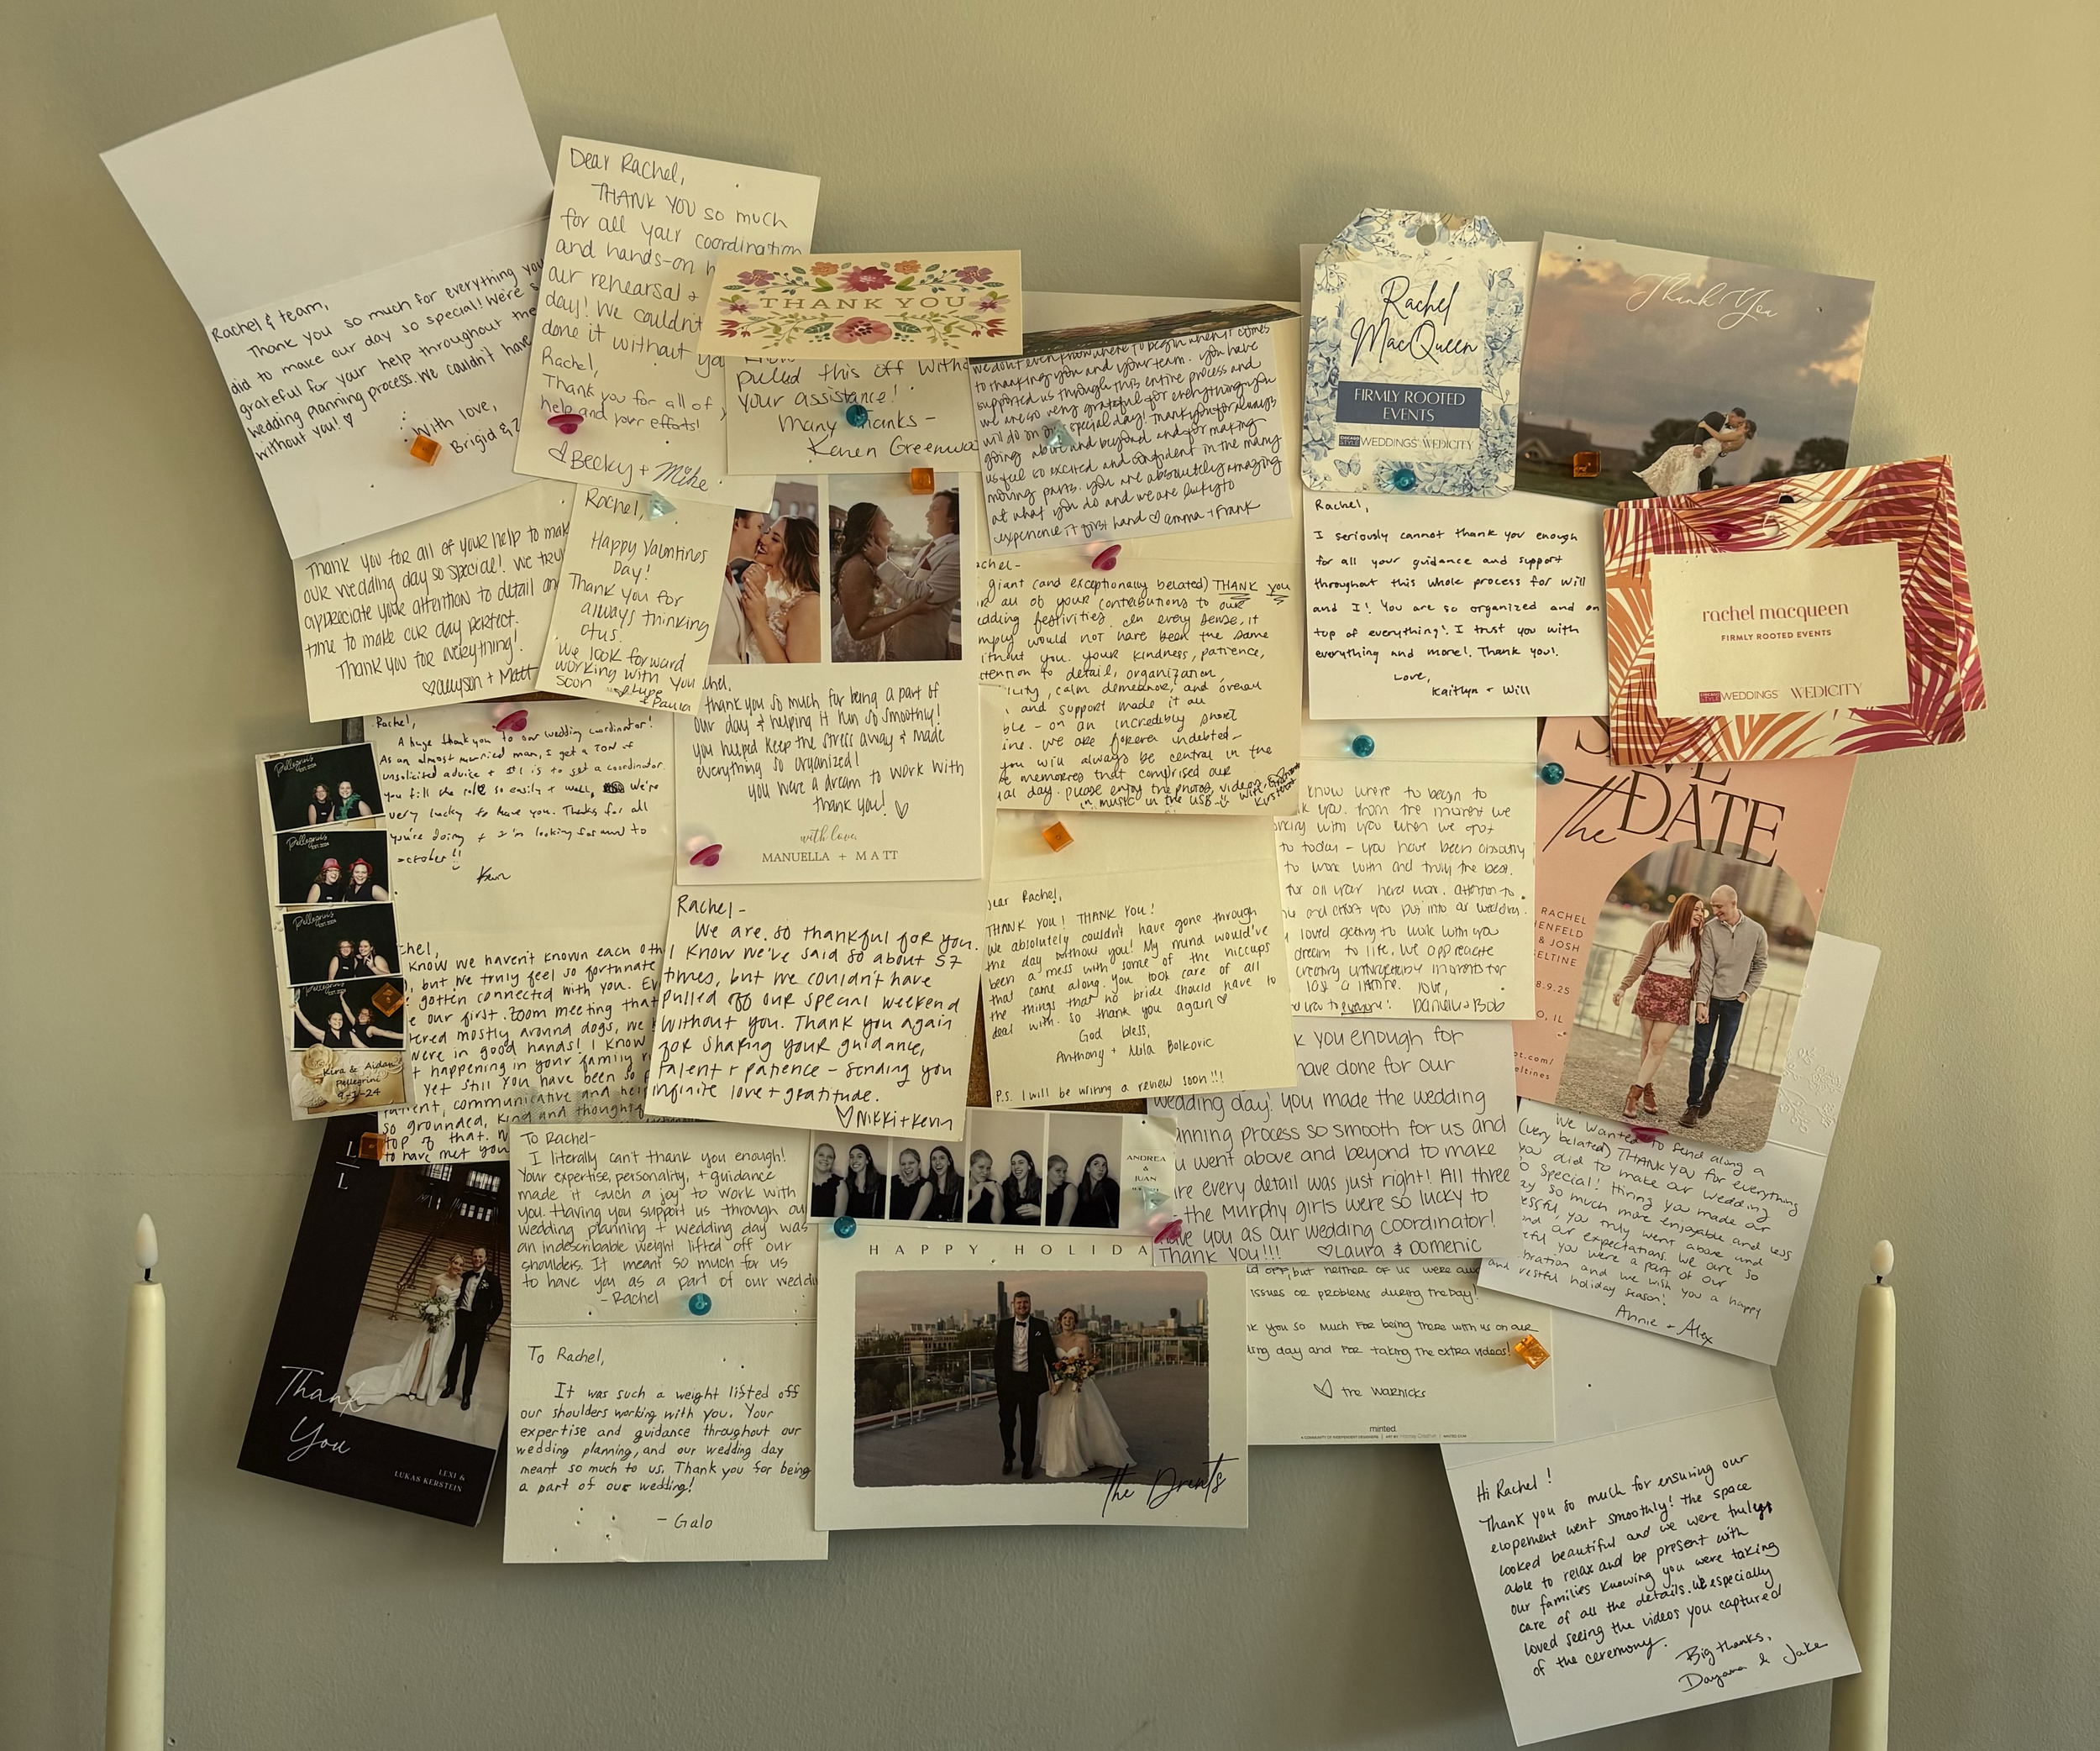 Rachel & team,
Thank you so much for everything you
did to make our day so special! We're
grateful for your help throughout the
wedding planning process. We couldn't have
without you! ♡
With love,
Brigid &
Dear Rachel,
THANK YOU so much
for all your coordination
and hands-on
our rehearsal +
day! We couldn't
done it without
Rachel,
Thank you for all of
help and your efforts!
♡ Becky + Mike
THANK YOU
know
pulled this off
your assistance!
Many Thanks -
Karen
we don't even know where to begin when it comes
to thanking you and your team. you have
supported us through this entire process and
we are so very grateful for everything you
will do on our special day! Thank you for always
going above and beyond and for making
us feel so excited and confident in the many
moving parts. you are absolutely amazing
at what you do and we are lucky to
experience it first hand ♡ emma + Frank
Rachel
MacQueen
FIRMLY ROOTED
EVENTS
CHICAGO STYLE WEDDINGS WEDICITY
Thank You
Thank you for all of your help to
our wedding day so special! We
appreciate your attention to detail
time to make our day perfect.
Thank you for everything!
♡ allyson + Matt
Rachel,
Happy Valentines
Day!
Thank you for
always thinking
of us.
We look forward
working with you
soon
+ Paula
giant (and exceptionally belated) THANK YOU
all of your contributions to our
festivities. In every sense, it
would not have been the same
without you. your kindness, patience,
attention to detail, organization,
calm demeanor, and overall
and support made it all
on an incredibly short
We are forever indebted-
you will always be central in the
memories that comprised our
day. please enjoy the photos, videos,
in music in the USB
Rachel,
I seriously cannot thank you enough
for all your guidance and support
throughout this whole process for Will
and I! You are so organized and on
top of everything! I trust you with
everything and more! Thank you!
Love,
Kaitlyn + Will
rachel macqueen
FIRMLY ROOTED EVENTS
CHICAGO STYLE WEDDINGS WEDICITY
Rachel,
A huge thank you to our wedding coordinator!
As an almost married man, I get a TON of
unsolicited advice + #1 is to get a coordinator.
you fill the role so easily + well, We're
very lucky to have you. Thanks for all
you're doing + I'm looking forward to
october!!
Kevin
thank you so much for being a part of
our day & helping it run so smoothly!
you helped keep the stress away & made
everything so organized!
you were a dream to work with
thank you! ♡
with love,
MANUELLA + MATT
know where to begin to
you. from the moment we
with you when we got
to today - you have been
to work with and truly the best.
for all your hard work, attention to
and effort you put into our wedding.
loved getting to work with you
dream to life. We appreciate
creating unforgettable moments for
a lifetime. love,
Danielle + Bob
SAVE
the DATE
RACHEL
& JOSH
8.9.25
Pellegrini's
Pellegrini's
Pellegrini's
Pellegrini's
Kira & Aidan
Pellegrini
9-1-24
know we haven't known each
but we truly feel so fortunate
gotten connected with you.
our first zoom meeting that
mostly around dogs, we
were in good hands! I know
happening in your family
yet still you have been so
communicative and
so grounded, kind and
top of that.
to have met you
Rachel -
We are so thankful for you.
I know we've said so about 57
times, but we couldn't have
pulled off our special weekend
without you. Thank you again
for sharing your guidance,
talent + patience - sending you
infinite love + gratitude.
♡ Nikki + Kevin
Dear Rachel,
THANK YOU! THANK YOU!
We absolutely couldn't have gone through
the day without you! My mind would've
been a mess with some of the hiccups
that came along. You took care of all
the things that no bride should have to
deal with. So thank you again ♡
God bless,
Anthony + Mila Bolkovic
P.S. I will be writing a review soon!!!
you enough for
have done for our
wedding day! you made the wedding
planning process so smooth for us and
went above and beyond to make
every detail was just right! All three
the Murphy girls were so lucky to
have you as our wedding coordinator!
Thank you!!! ♡ Laura & Domenic
we wanted to send along a
(very belated) THANK YOU for everything
you did to make our wedding
so special! Hiring you made our
day so much more enjoyable and less
you truly went above and
our expectations. We are so
you were a part of our
and we wish you a happy
and restful holiday season!
Annie + Alex
L
L
Thank
You
LEXI &
LUKAS KERSTEIN
To Rachel-
I literally can't thank you enough!
Your expertise, personality, + guidance
made it such a joy to work with
you. Having you support us through our
wedding planning + wedding day was
an indescribable weight lifted off our
shoulders. It meant so much for us
to have you as a part of our
- Rachel
To Rachel,
It was such a weight lifted off
our shoulders working with you. Your
expertise and guidance throughout our
wedding planning, and our wedding day
meant so much to us. Thank you for being
a part of our wedding!
- Galo
ANDREA
&
JUAN
HAPPY HOLIDA
The Drents
but neither of us were
issues or problems during the day!
you so much for being there with us on our
day and for taking the extra videos!
♡ the Warnicks
minted.
Hi Rachel!
Thank you so much for ensuring our
elopement went smoothly! The space
looked beautiful and we were truly
able to relax and be present with
our families knowing you were taking
care of all the details. We especially
loved seeing the videos you captured
of the ceremony.
Big thanks,
Dayana & Jake